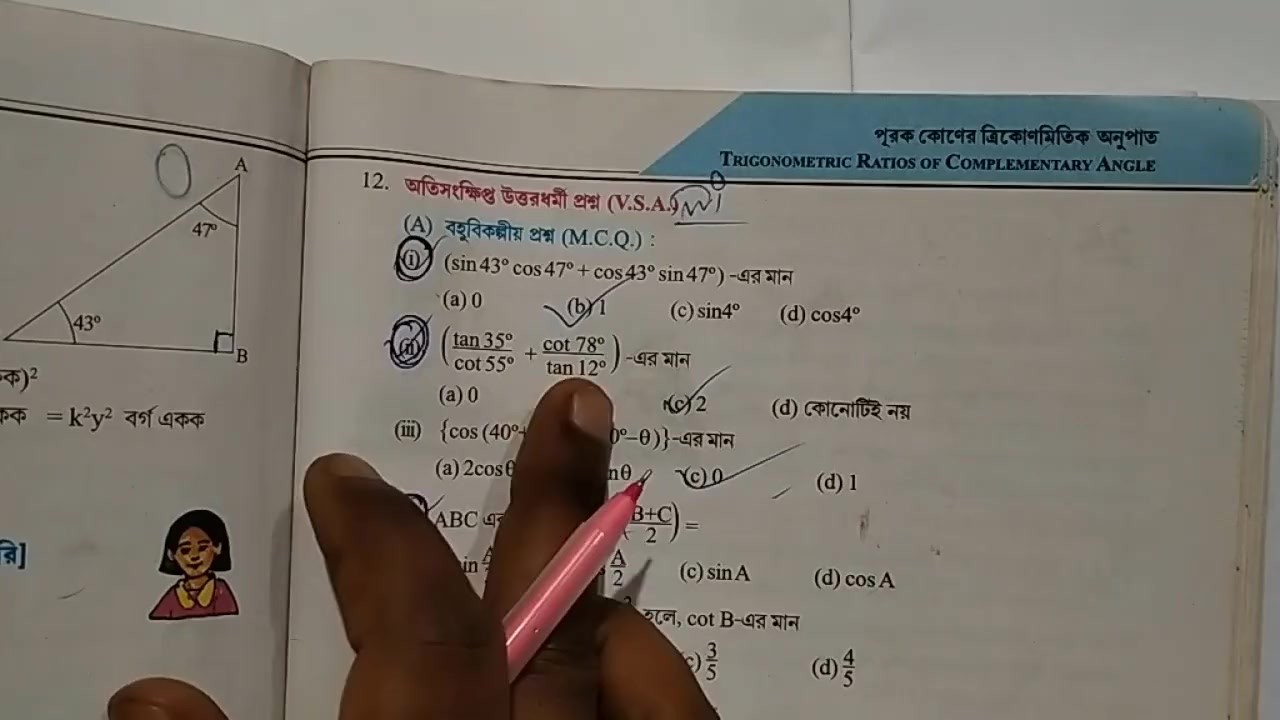 A
47º
43º
B
ক)²
= k²y² বর্গ একক
রি]
পূরক কোণের ত্রিকোণমিতিক অনুপাত
TRIGONOMETRIC RATIOS OF COMPLEMENTARY ANGLE
12. অতিসংক্ষিপ্ত উত্তরধর্মী প্রশ্ন (V.S.A.)
(A) বহুবিকল্পীয় প্রশ্ন (M.C.Q.) :
(i) (sin 43º cos 47º + cos 43º sin 47º) -এর মান
(a) 0 (b) 1 (c) sin4º (d) cos4º
(ii) (tan 35º/cot 55º + cot 78º/tan 12º) -এর মান
(a) 0 (c) 2 (d) কোনোটিই নয়
(iii) {cos (40º+ 0º−θ)}-এর মান
(a) 2cosθ nθ (c) 0 (d) 1
ABC B+C/2) =
A/2 (c) sin A (d) cos A
হলে, cot B-এর মান
3/5 (d) 4/5